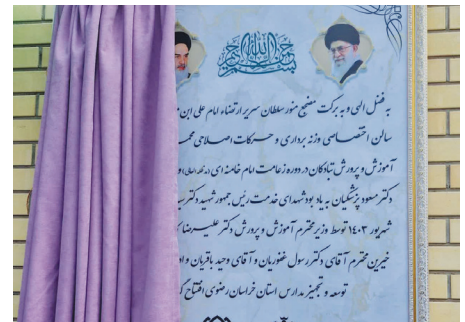 بسم الله الرحمن الرحیم
به فضل الهی و به برکت مضجع منور سلطان سریر ارتضاء امام علی ابن
سالن اختصاصی وزنه برداری و حرکات اصلاحی
آموزش و پرورش تبادکان در دوره زعامت امام خامنه ای و
دکتر مسعود پزشکیان به یاد بود شهدای خدمت رئیس جمهور شهید دکتر
شهریور ۱۴۰۳ توسط وزیر محترم آموزش و پرورش دکتر علیرضا
خیرین محترم آقای دکتر رسول غفوریان و آقای وحید باقریان و
توسعه و تجهیز مدارس استان خراسان رضوی افتتاح